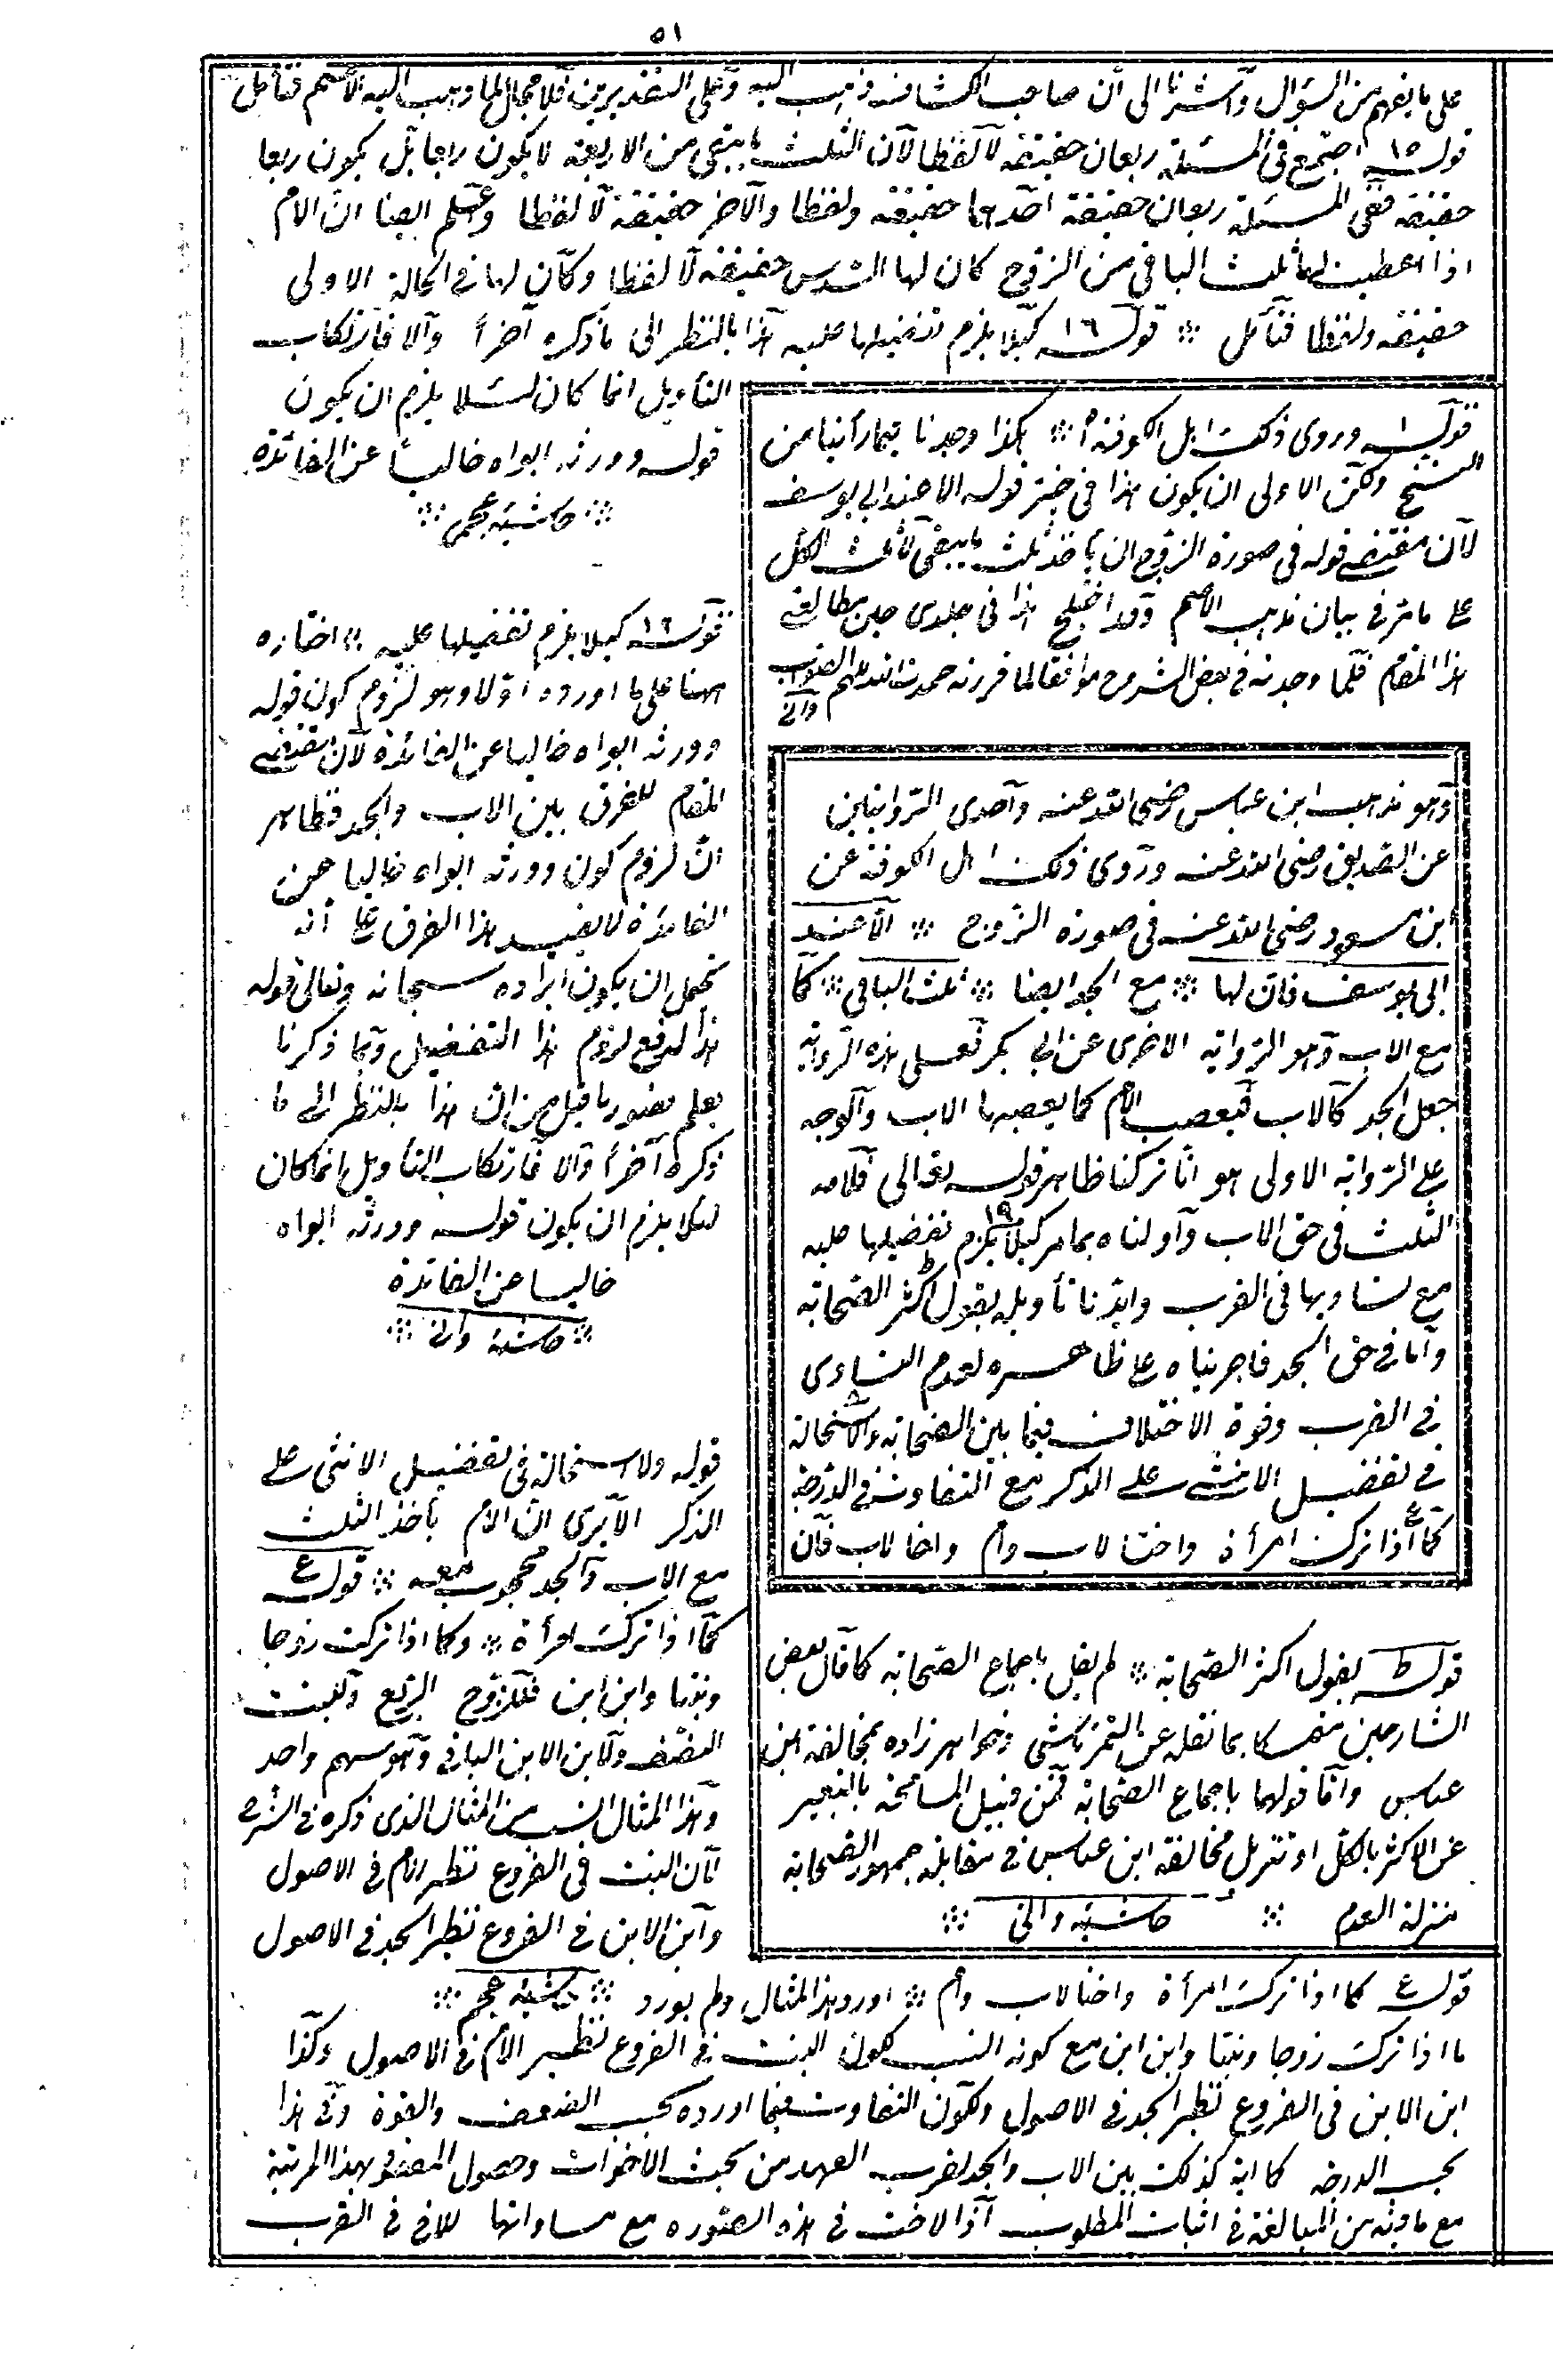 ٥١
على ما يفهم من السؤال وأشرنا الى أن صاحب الكشاف ذهب اليه وعلى التقديرين فلا مجال لما ذهب اليه الأصم فتأمل
قوله ١٥ اجتمع فى المسئلة ربعان حقيقة لا لفظا لأن الثلث ما يبقى من الاربعة لا يكون رابعا بل يكون ربعا
حقيقة ففى المسئلة ربعان حقيقة احدهما حقيقة ولفظا والآخر حقيقة لا لفظا واعلم ايضا ان الام
اذا اعطيت لها ثلث الباقى من الزوج كان لها السدس حقيقة لا لفظا وكان لها فى الحالة الاولى
حقيقة ولفظا فتأمل قوله ١٦ كيلا يلزم تفضيلها عليه هذا بالنظر الى ما ذكره آخرا والا فارتكاب
التأويل انما كان لئلا يلزم ان يكون
قوله وورثه ابواه خاليا عن الفائدة
حاشية عجم
قوله ١ وروى ذلك اهل الكوفة هكذا وجدنا فيما رأينا من
النسخ ولكن الاولى ان يكون هذا فى خبر قوله الا عند ابى يوسف
لأن مقتضى قوله فى صورة الزوج ان يأخذ ثلث ما يبقى لا ثلث الكل
على ما مر فى بيان مذهب الأصم وقد اختلج هذا فى خلدى حين مطالعة
هذا المقام فلما وجدته فى بعض الشروح موافقا لما قررته حمدت الله الملهم للصواب
وانى
وهو مذهب ابن عباس رضى الله عنه واحدى الروايتين
عن الصديق رضى الله عنه وروى ذلك اهل الكوفة عن
ابن مسعود رضى الله عنه فى صورة الزوج الا عند
ابى يوسف فان لها مع الجد ايضا ثلث الباقى كما
مع الاب وهو الرواية الاخرى عن ابى بكر فعلى هذه الرواية
جعل الجد كالاب فيعصب الأم كما يعصبها الاب والوجه
على الرواية الاولى هو انا تركنا ظاهر قوله تعالى فلامه
الثلث فى حق الاب وأولناه بما مر كيلا ١٩ يلزم تفضيلها عليه
مع تساويهما فى القرب وايدنا تأويله بقول ط اكثر الصحابة
واما فى حق الجد فاجريناه على ظاهره لعدم التساوى
فى القرب وقوة الاختلاف فيما بين الصحابة ولا استحالة
فى تفضيل الانثى على الذكر مع التفاوت فى الدرجة
كما ع اذا ترك امرأة واختا لاب وام واخا لاب فان
قوله ط بقول اكثر الصحابة لم يقل باجماع الصحابة كما قال بعض
الشارحين متمسكا بما نقله عن التمرتاشى وخواهر زاده بمخالفة ابن
عباس واما قولهما باجماع الصحابة فمن قبيل المسامحة بالتعبير
عن الاكثر بالكل او تنزيل مخالفة ابن عباس فى مقابلة جمهور الصحابة
منزلة العدم حاشية وانى
قوله ١٦ كيلا يلزم تفضيلها عليه اختاره
ههنا على ما اورده اولا وهو لزوم كون قوله
وورثه ابواه خاليا عن الفائدة لأن مقتضى
المقام للفرق بين الاب والجد فظاهر
ان لزوم كون وورثه ابواه خاليا عن
الفائدة لا يفيد هذا الفرق على انه
يحتمل ان يكون ايراده سبحانه وتعالى قوله
هذا لدفع لزوم هذا التفضيل وبما ذكرنا
يعلم قصور ما قيل من ان هذا بالنظر الى ما
ذكره آخرا والا فارتكاب التأويل انما كان
لئلا يلزم ان يكون قوله وورثه ابواه
خاليا عن الفائدة
حاشية وانى
قوله ولا استحالة فى تفضيل الانثى على
الذكر الا يرى ان الأم يأخذ الثلث
مع الاب والجد محجوب معه قوله ع
كما اذا تركت امرأة وكما اذا تركت زوجا
وبنتا وابن ابن فللزوج الربع وللبنت
النصف ولابن الابن الباقى وهو سهم واحد
وهذا المثال انسب من المثال الذى ذكره فى الشرح
لأن البنت فى الفروع نظير الام فى الاصول
وابن الابن فى الفروع نظير الجد فى الاصول
حاشية عجم
قوله ع كما اذا تركت امرأة واختا لاب وأم اورد هذا المثال ولم يورد
ما اذا تركت زوجا وبنتا وابن ابن مع كونه انسب لكون البنت فى الفروع نظير الأم فى الاصول وكذا
ابن الابن فى الفروع نظير الجد فى الاصول ولكون التفاوت فيما اورده بحسب الضعف والقوة وفى هذا
بحسب الدرجة كما انه كذلك بين الاب والجد لقرب العهد من بحث الاخوات وحصول المقصود بهذا المرتبة
مع ما فيه من المبالغة فى اثبات المطلوب اذ الاخت فى هذه الصورة مع مساواتها للاخ فى القرب